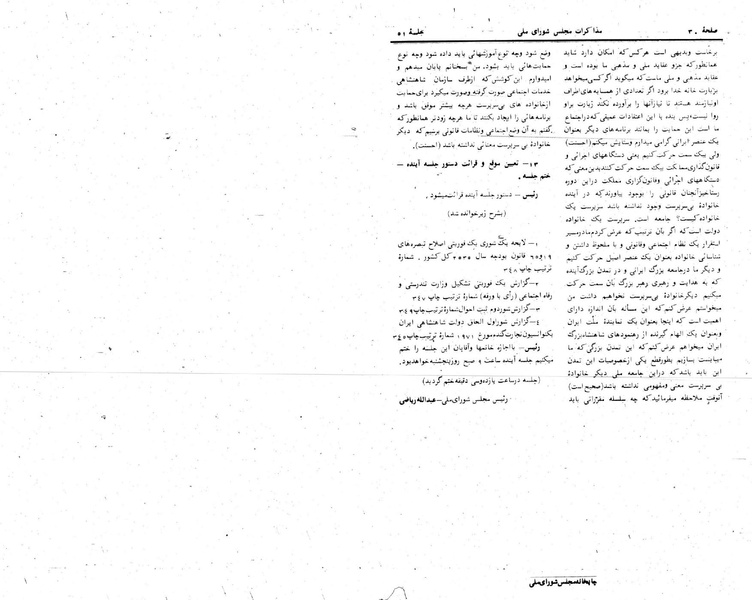 صفحهٔ ۳۰
مذاکرات مجلس شورای ملی
جلسهٔ ۵۱
برخاست وبدیهی است هرکس که امکان دارد شاید
همانطورکه جزو عقاید ملی و مذهبی ما بوده است و
عقاید مذهبی و ملی ماست که میگوید اگر کسی میخواهد
بزیارت خانه خدا برود اگر تعدادی از همسایه‌های اطراف
اونیازمند هستند تا نیازآنها را برآورده نکند زیارت براو
روا نیست، پس بنده با این اعتقادات عمیقی که دراجتماع
ما است این حمایت را بمانند برنامه‌های دیگر بعنوان
یک عنصر ایرانی گرامی میدارم وستایش میکنم (احسنت)
ولی بیک سمت حرکت کنیم یعنی دستگاههای اجرائی و
قانون‌گذاری مملکت بیک سمت حرکت کنند بدین معنی که
دستگاههای اجرائی وقانون‌گزاری مملکت دراین دوره
رستاخیز آنچنان قانونی را بوجود بیاورند که در آینده
خانوادهٔ بی‌سرپرست وجود نداشته باشد سرپرست یک
خانواده کیست؟ جامعه است. سرپرست یک خانواده
دولت است که اگر بآن ترتیب که عرض کردم مادرمسیر
استقرار یک نظام اجتماعی وقانونی و با ملحوظ داشتن و
شناسائی خانواده بعنوان یک عنصر اصیل حرکت کنیم
و دیگر ما درجامعه بزرگ ایرانی و در تمدن بزرگ آینده
که به هدایت و رهبری رهبر بزرگ بآن سمت حرکت
میکنیم دیگرخانوادهٔ بی‌سرپرست نخواهیم داشت من
میخواستم عرض کنم که این مسأله بآن اندازه دارای
اهمیت است که اینجا بعنوان یک نمایندهٔ ملت ایران
وبعنوان یک الهام گیرنده از رهنمودهای شاهنشاه بزرگ
ایران میخواهم عرض کنم که این تمدن بزرگی که ما
میبایست بسازیم بطورقطع یکی ازخصوصیات این تمدن
این باید باشد که دراین جامعه ملی دیگر خانوادهٔ
بی سرپرست معنی ومفهومی نداشته باشد (صحیح است)
آنوقت ملاحظه میفرمائید که چه سلسله مقرراتی باید
وضع شود وچه نوع آموزشهائی باید داده شود وچه نوع
حمایت‌هائی باید بشود. من سخنانم پایان میدهم و
امیدوارم این کوششی که ازطرف سازمان شاهنشاهی
خدمات اجتماعی صورت گرفته وصورت میگیرد برای حمایت
ازخانواده های بی‌سرپرست هرچه بیشتر موفق باشد و
برنامه‌هائی را ایجاد بکنند تا ما هرچه زودتر همانطورکه
گفتم به آن وضع اجتماعی ونظامات قانونی برسیم که دیگر
خانوادهٔ بی سرپرست معنائی نداشته باشد (احسنت).
۱۳- تعیین موقع و قرائت دستور جلسه آینده -
ختم جلسه.
رئیس - دستور جلسه آینده قرائت میشود.
(بشرح زیرخوانده شد)
۱- لایحه یک شوری یک فوریتی اصلاح تبصره‌های
۱۹و۶۵ قانون بودجه سال ۲۵۳۵ کل کشور. شمارهٔ
ترتیب چاپ ۳۴۸
۲- گزارش یک فوریتی تشکیل وزارت تندرستی و
رفاه اجتماعی (رأی با ورقه) شمارهٔ ترتیب چاپ
۳- گزارش شوردوم ثبت احوال شمارهٔ ترتیب چاپ
۴- گزارش شوراول الحاق دولت شاهنشاهی ایران
بکنوانسیون تجارت گندم مورخ ۱۹۷۱ شمارهٔ ترتیب چاپ
رئیس - با اجازه خانمها وآقایان این جلسه را ختم
میکنیم جلسه آینده ساعت ۹ صبح روز پنجشنبه خواهد بود.
(جلسه درساعت یازده‌وسی دقیقه ختم گردید)
رئیس مجلس شورای ملی - عبدالله ریاضی
چاپخانه مجلس شورای ملی